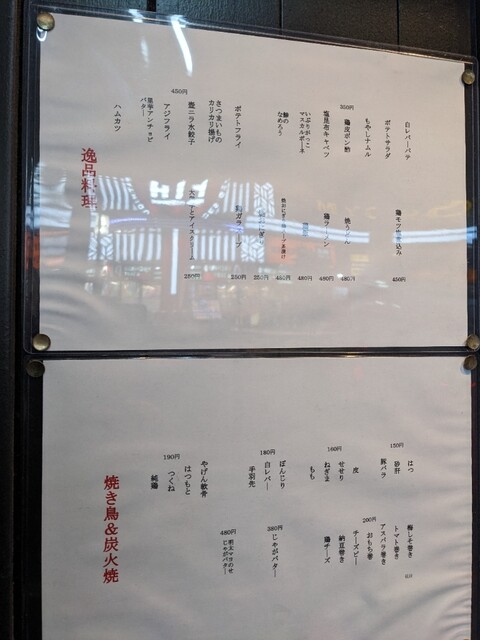 白レバーパテ
ポテトサラダ
もやしナムル
350円
鶏皮ポン酢
塩昆布キャベツ
いぶりがっこ
マスカルポーネ
鯵の
なめろう
ポテトフライ
さつまいもの
カリカリ揚げ
450円
豊ニラ水餃子
アジフライ
里芋アンチョビ
バター
ハムカツ
450円
焼うどん
480円
480円
480円
450円
350円
250円
250円
逸品料理
はつ
150円
砂肝
豚バラ
皮
160円
せせり
ねぎま
もも
ぼんじり
180円
白レバー
手羽先
やげん軟骨
はつもと
190円
つくね
純鶏
梅しそ巻き
トマト巻き
アスパラ巻き
200円
おもち巻
チーズピー
納豆巻き
鶏チーズ
じゃがバター
380円
明太マヨのせ
じゃがバター
480円
焼き鳥&炭火焼